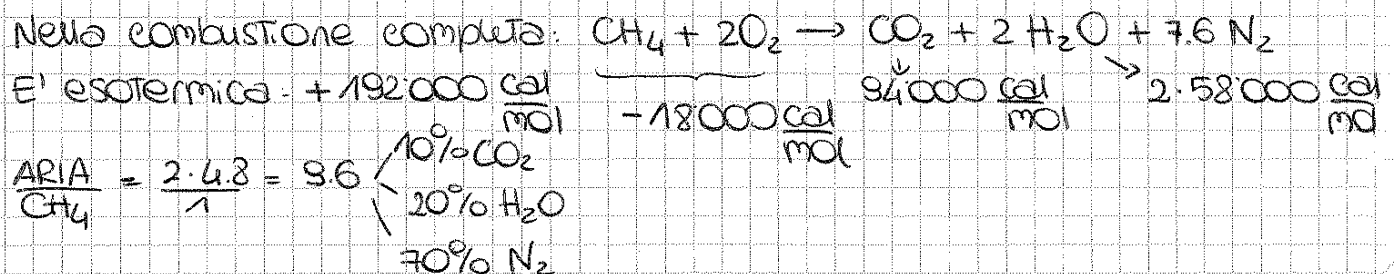 Nella combustione completa: CH₄ + 2O₂ → CO₂ + 2 H₂O + 7.6 N₂
E' esotermica. +192'000 cal/mol -18'000 cal/mol 94'000 cal/mol 2·58'000 cal/mol
ARIA/CH₄ = 2·4.8/1 = 9.6
10% CO₂
20% H₂O
70% N₂